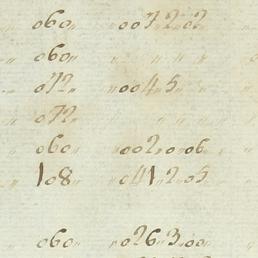 060,, ,,0072,02
060,,
072 ,,0045,,
072
060,, ,,002,0,06
108 ,,041,2,05
060,, ,,026,3,00